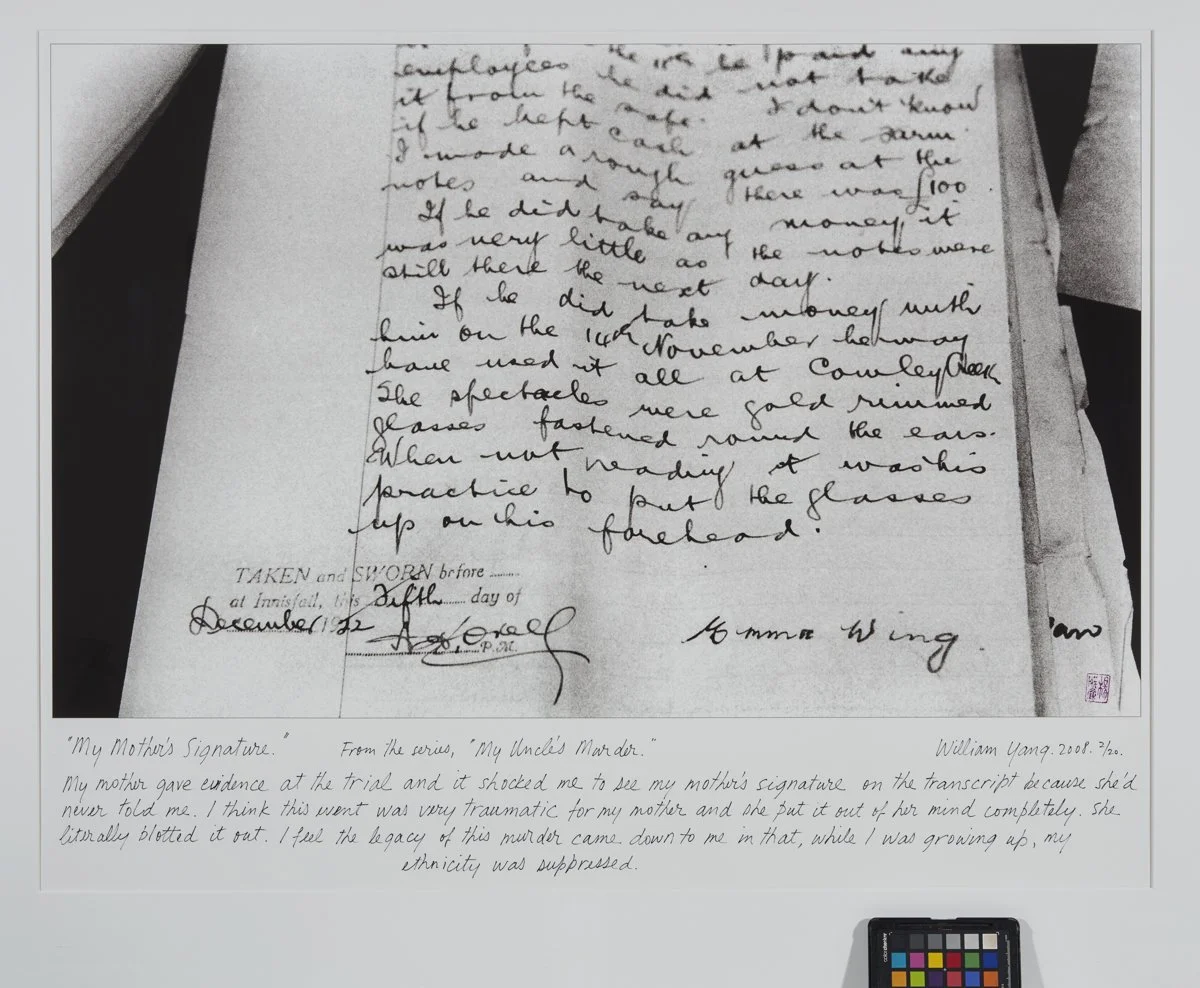 employees he did not take
it from the safe. I don't know
if he kept cash at the farm.
I made a rough guess at the
notes and say there was £100.
If he did take any money it
was very little as the notes were
still there the next day.
If he did take money with
him on the 14th November he may
have used it all at Cowley Creek
The spectacles were gold rimmed
glasses fastened round the ears.
When not reading it was his
practice to put the glasses
up on his forehead.
TAKEN and SWORN before
at Innisfail, this Fifth day of
December 1922
P.M.
Emma Wing.
"My Mother's Signature." From the series, "My Uncle's Murder." William Yang. 2008. 2/20.
My mother gave evidence at the trial and it shocked me to see my mother's signature on the transcript because she'd
never told me. I think this event was very traumatic for my mother and she put it out of her mind completely. She
literally blotted it out. I feel the legacy of this murder came down to me in that, while I was growing up, my
ethnicity was suppressed.